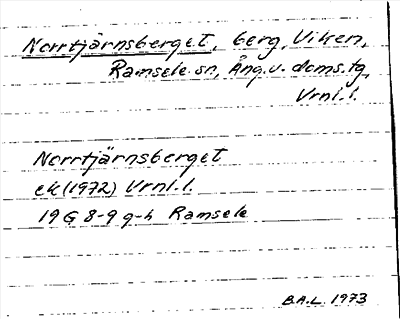 Norrtjärnsberget, berg, Viken,
Ramsele sn, Ång. v. doms.tg,
Vrnl.l.
Norrtjärnsberget
ek (1972) Vrnl.l.
19 G 8-9 g-h Ramsele
B.A.L. 1973